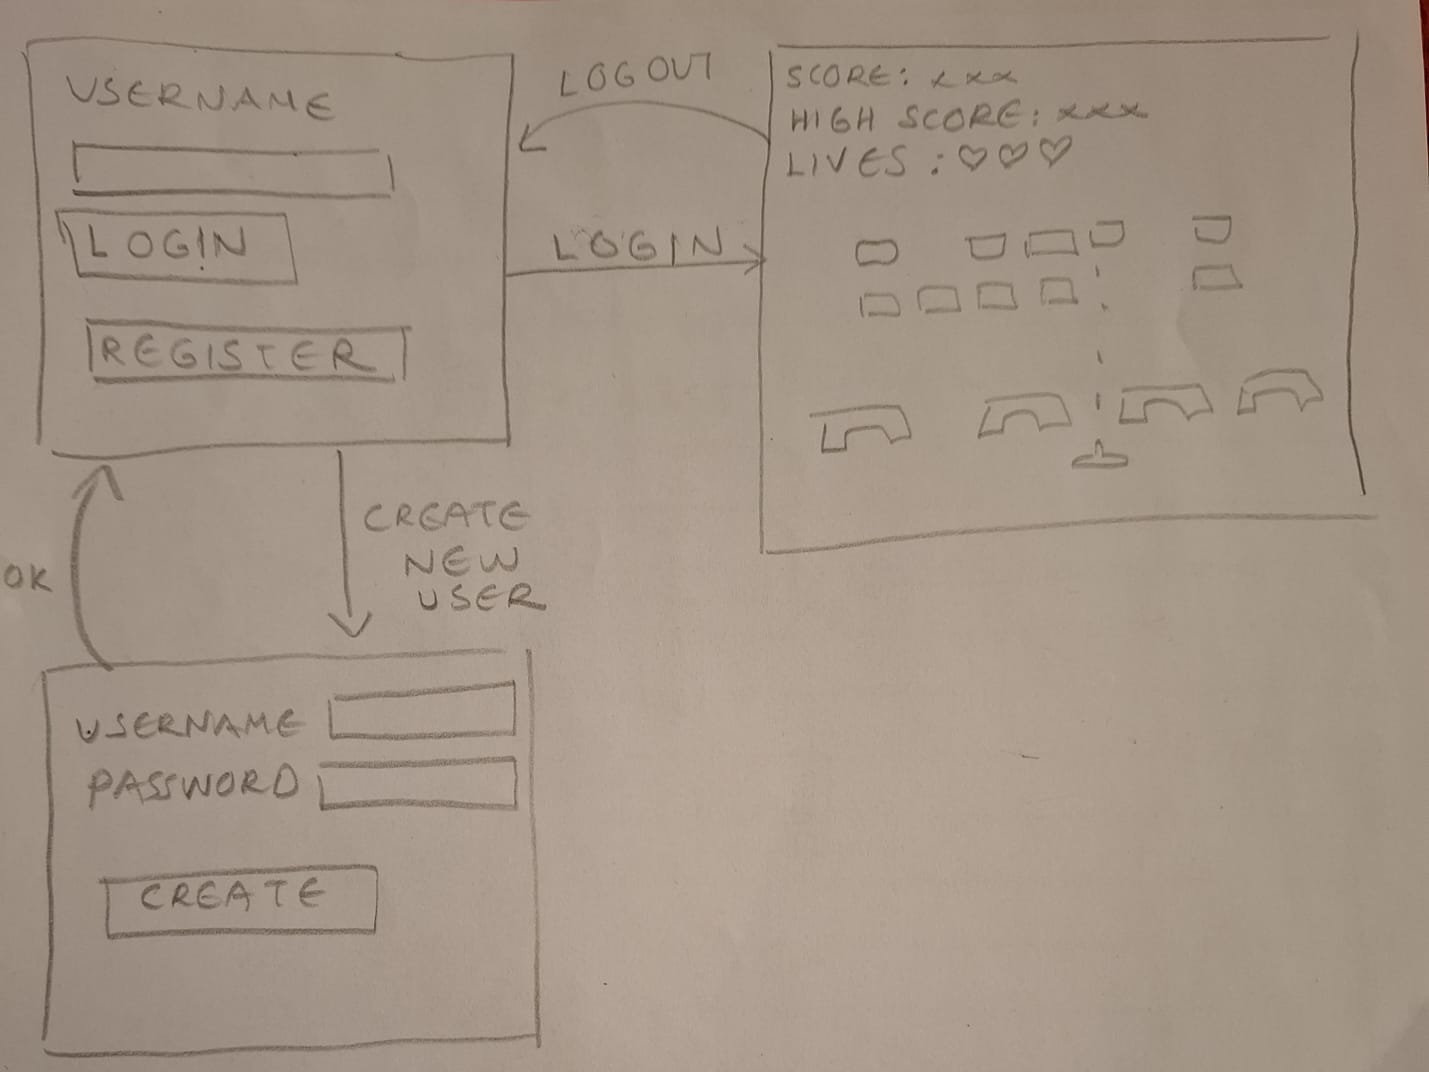 USERNAME
LOGIN
REGISTER
LOGOUT
LOGIN
SCORE: xxx
HIGH SCORE: xxx
LIVES : ♡♡♡
OK
CREATE
NEW
USER
USERNAME
PASSWORD
CREATE